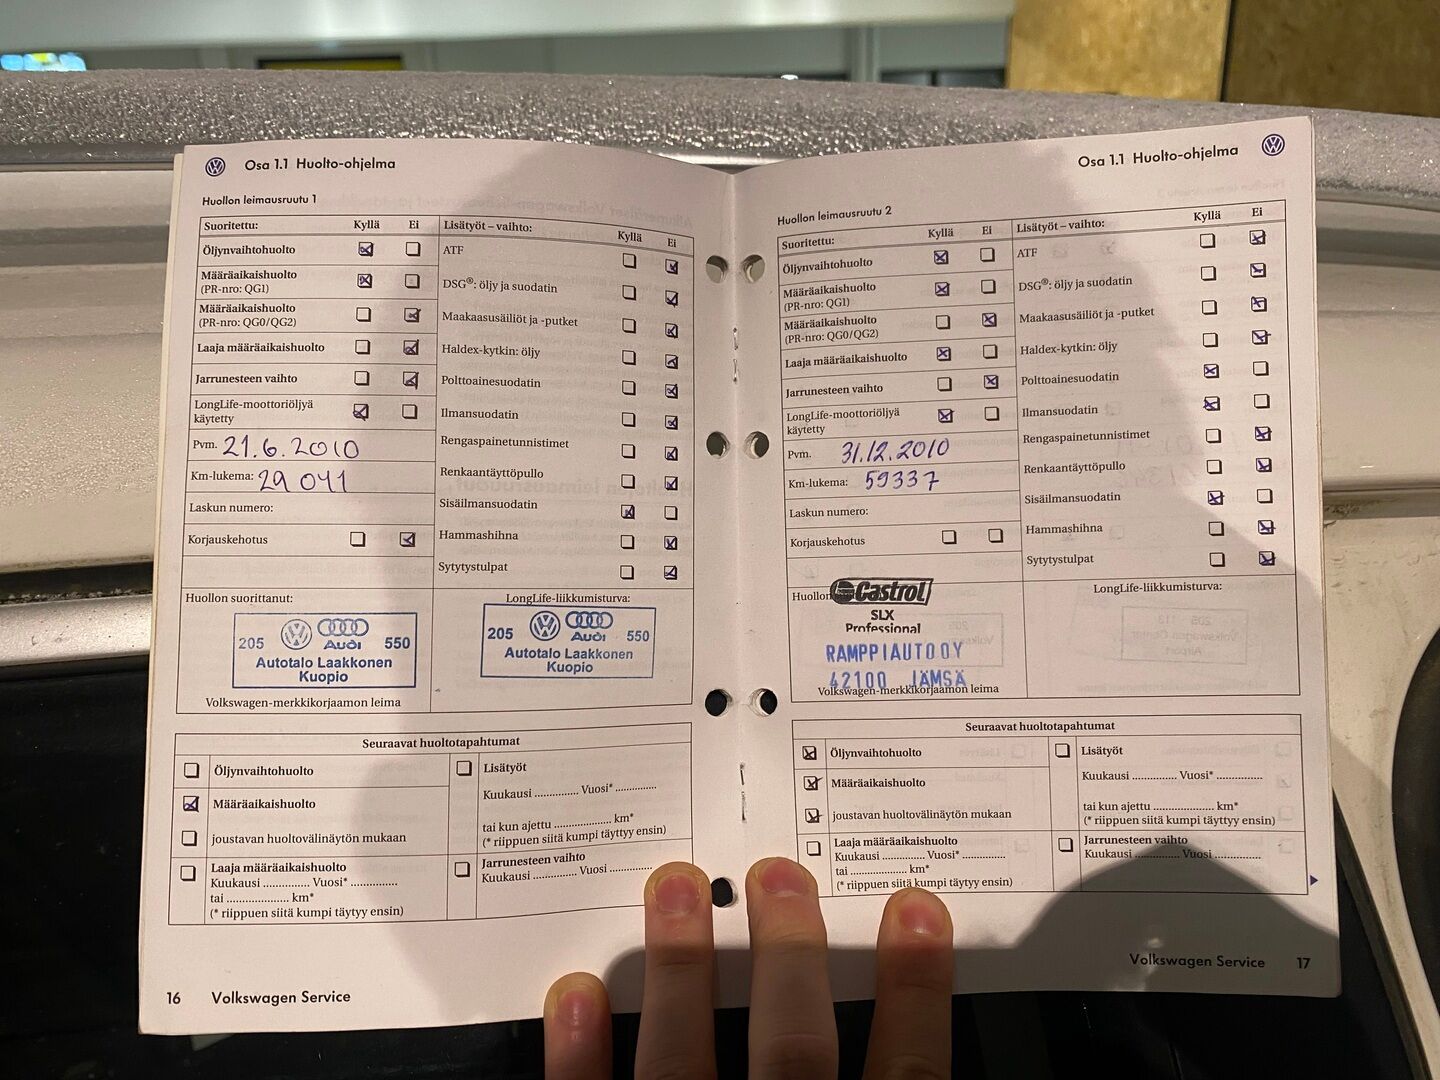 Osa 1.1 Huolto-ohjelma
Huollon leimausruutu 1
Suoritettu: Kyllä Ei
Öljynvaihtohuolto
Määräaikaishuolto
(PR-nro: QG1)
Määräaikaishuolto
(PR-nro: QG0/QG2)
Laaja määräaikaishuolto
Jarrunesteen vaihto
LongLife-moottoriöljyä
käytetty
Pvm. 21.6.2010
Km-lukema: 29 041
Laskun numero:
Korjauskehotus
Lisätyöt – vaihto: Kyllä Ei
ATF
DSG®: öljy ja suodatin
Maakaasusäiliöt ja -putket
Haldex-kytkin: öljy
Polttoainesuodatin
Ilmansuodatin
Rengaspainetunnistimet
Renkaantäyttöpullo
Sisäilmansuodatin
Hammashihna
Sytytystulpat
Huollon suorittanut:
205 Audi 550
Autotalo Laakkonen
Kuopio
Volkswagen-merkkikorjaamon leima
LongLife-liikkumisturva:
205 Audi 550
Autotalo Laakkonen
Kuopio
Seuraavat huoltotapahtumat
Öljynvaihtohuolto
Määräaikaishuolto
joustavan huoltovälinäytön mukaan
Laaja määräaikaishuolto
Kuukausi .............. Vuosi* ..............
tai .................... km*
(* riippuen siitä kumpi täytyy ensin)
Lisätyöt
Kuukausi .............. Vuosi* ..............
tai kun ajettu .................... km*
(* riippuen siitä kumpi täyttyy ensin)
Jarrunesteen vaihto
Kuukausi .............. Vuosi ..............
16 Volkswagen Service
Osa 1.1 Huolto-ohjelma
Huollon leimausruutu 2
Suoritettu: Kyllä Ei
Öljynvaihtohuolto
Määräaikaishuolto
(PR-nro: QG1)
Määräaikaishuolto
(PR-nro: QG0/QG2)
Laaja määräaikaishuolto
Jarrunesteen vaihto
LongLife-moottoriöljyä
käytetty
Pvm. 31.12.2010
Km-lukema: 59337
Laskun numero:
Korjauskehotus
Lisätyöt – vaihto: Kyllä Ei
ATF
DSG®: öljy ja suodatin
Maakaasusäiliöt ja -putket
Haldex-kytkin: öljy
Polttoainesuodatin
Ilmansuodatin
Rengaspainetunnistimet
Renkaantäyttöpullo
Sisäilmansuodatin
Hammashihna
Sytytystulpat
Huollon
Castrol
SLX
Professional
RAMPPIAUTO OY
42100 JÄMSÄ
Volkswagen-merkkikorjaamon leima
LongLife-liikkumisturva:
Seuraavat huoltotapahtumat
Öljynvaihtohuolto
Määräaikaishuolto
joustavan huoltovälinäytön mukaan
Laaja määräaikaishuolto
Kuukausi .............. Vuosi* ..............
tai .................... km*
(* riippuen siitä kumpi täytyy ensin)
Lisätyöt
Kuukausi .............. Vuosi* ..............
tai kun ajettu .................... km*
(* riippuen siitä kumpi täyttyy ensin)
Jarrunesteen vaihto
Kuukausi .............. Vuosi ..............
Volkswagen Service 17